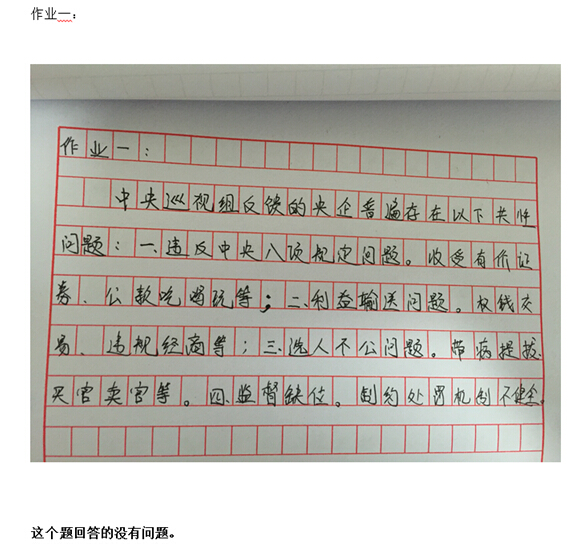 作业一:
作业一:
中央巡视组反馈的央企普遍存在以下共性
问题:一、违反中央八项规定问题。收受有价证
券、公款吃喝玩等;二、利益输送问题。权钱交
易、违规经商等;三、选人不公问题。带病提拔、
买官卖官等。四、监督缺位。制约处罚机制不健全。
这个题回答的没有问题。